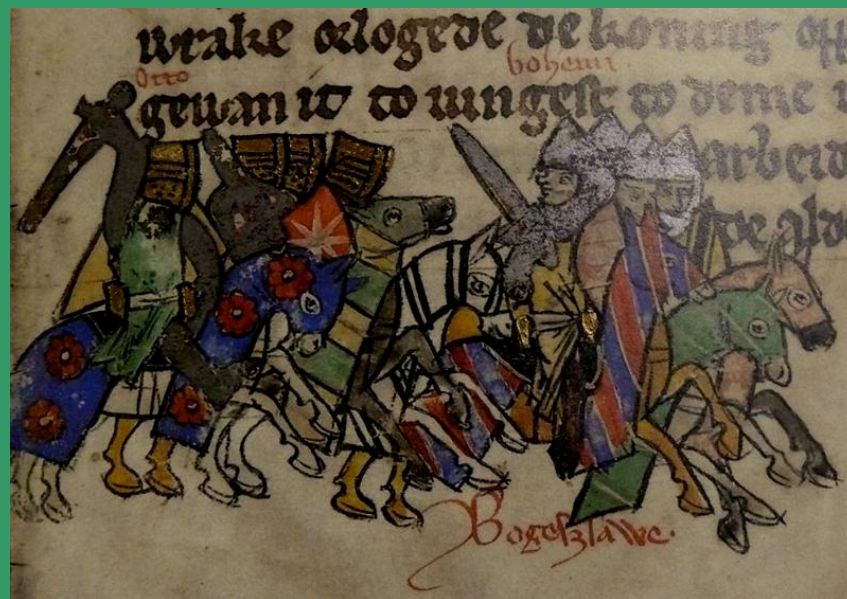 wrake orlogede de koning
Otto bohemi
gewan it to iungest to deme
arbeid
alde
Bogeszlawe.